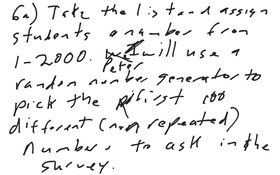 6a) Take the list and assign
students a number from
1-2000. I will use a
Peter
random number generator to
pick the first 100
different (non repeated)
numbers to ask in the
survey.